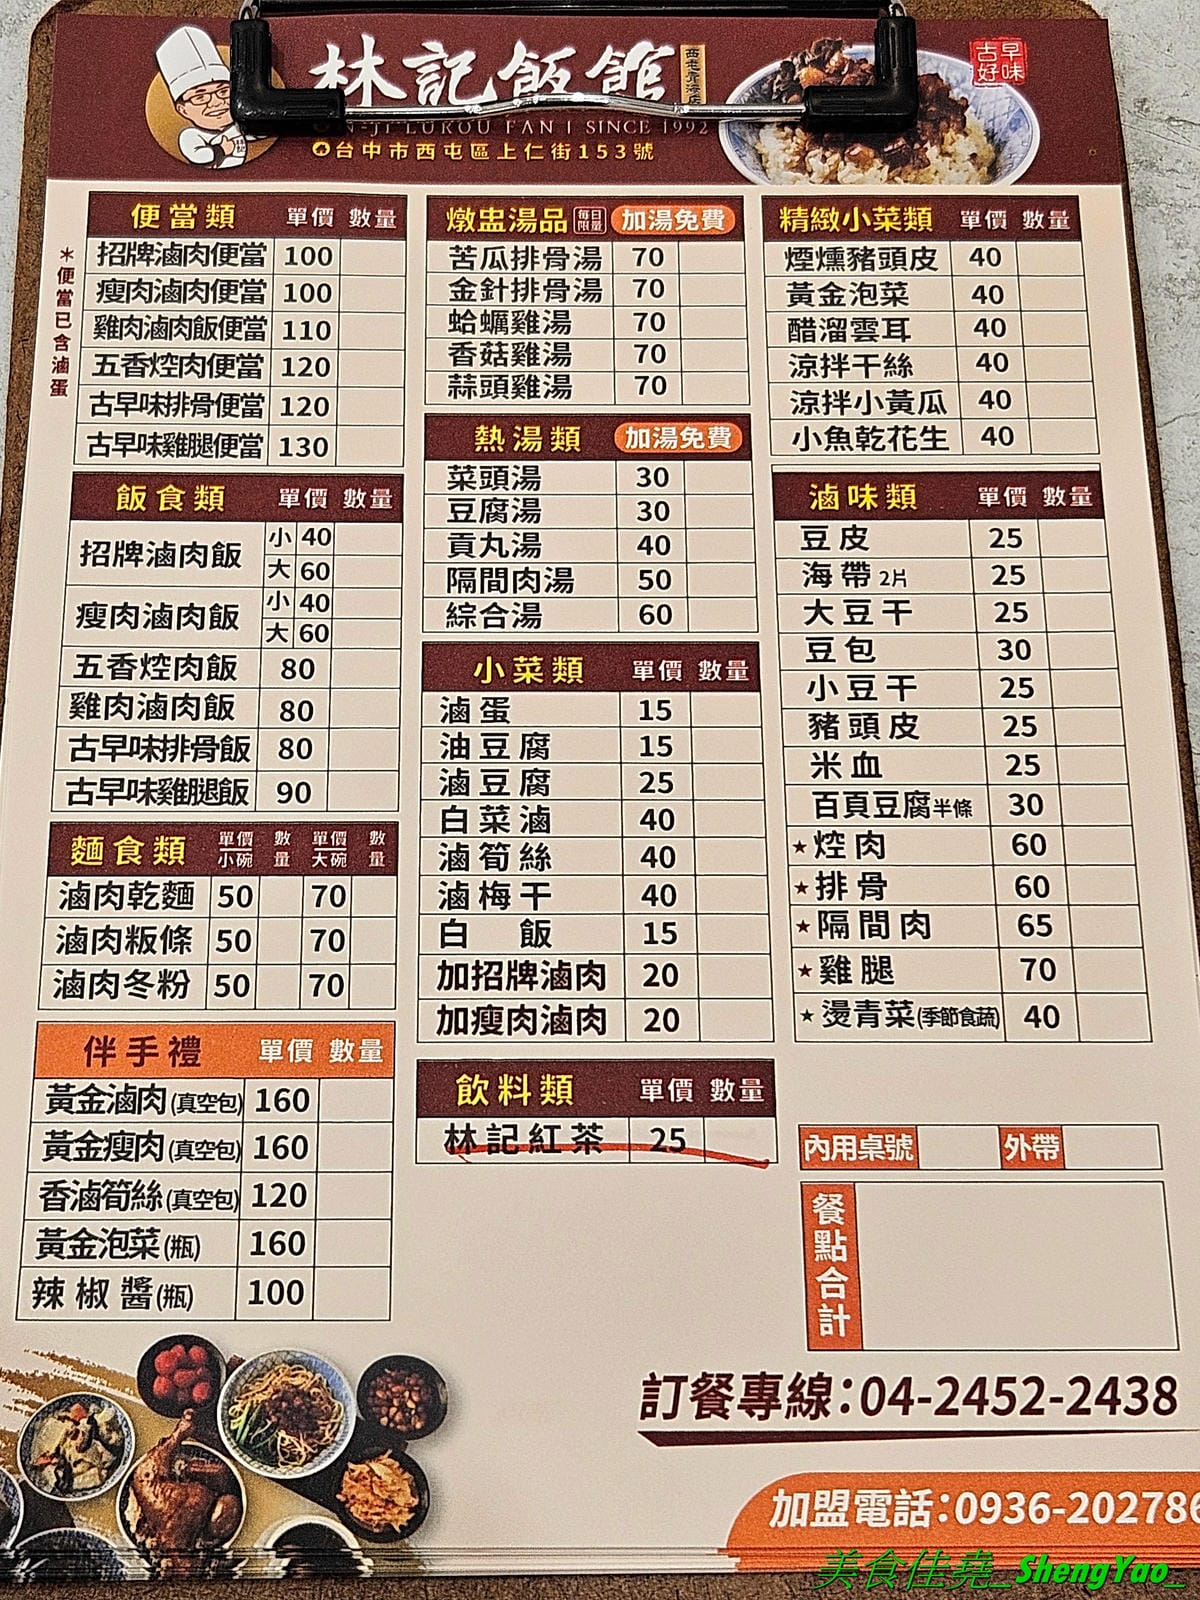 林記飯館
古早
好味
N-JI LUROU FAN | SINCE 1992
台中市西屯區上仁街153號
*便當已含滷蛋
便當類 單價 數量
招牌滷肉便當 100
瘦肉滷肉便當 100
雞肉滷肉飯便當 110
五香焢肉便當 120
古早味排骨便當 120
古早味雞腿便當 130
飯食類 單價 數量
招牌滷肉飯 小 40
大 60
瘦肉滷肉飯 小 40
大 60
五香焢肉飯 80
雞肉滷肉飯 80
古早味排骨飯 80
古早味雞腿飯 90
麵食類 單價小碗 數量 單價大碗 數量
滷肉乾麵 50 70
滷肉粄條 50 70
滷肉冬粉 50 70
伴手禮 單價 數量
黃金滷肉(真空包) 160
黃金瘦肉(真空包) 160
香滷筍絲(真空包) 120
黃金泡菜(瓶) 160
辣椒醬(瓶) 100
燉盅湯品 每日限量 加湯免費
苦瓜排骨湯 70
金針排骨湯 70
蛤蠣雞湯 70
香菇雞湯 70
蒜頭雞湯 70
熱湯類 加湯免費
菜頭湯 30
豆腐湯 30
貢丸湯 40
隔間肉湯 50
綜合湯 60
小菜類 單價 數量
滷蛋 15
油豆腐 15
滷豆腐 25
白菜滷 40
滷筍絲 40
滷梅干 40
白飯 15
加招牌滷肉 20
加瘦肉滷肉 20
飲料類 單價 數量
林記紅茶 25
精緻小菜類 單價 數量
煙燻豬頭皮 40
黃金泡菜 40
醋溜雲耳 40
涼拌干絲 40
涼拌小黃瓜 40
小魚乾花生 40
滷味類 單價 數量
豆皮 25
海帶2片 25
大豆干 25
豆包 30
小豆干 25
豬頭皮 25
米血 25
百頁豆腐半條 30
★焢肉 60
★排骨 60
★隔間肉 65
★雞腿 70
★燙青菜(季節食蔬) 40
內用桌號 外帶
餐點合計
訂餐專線:04-2452-2438
加盟電話:0936-202786
美食佳堯_ShengYao_